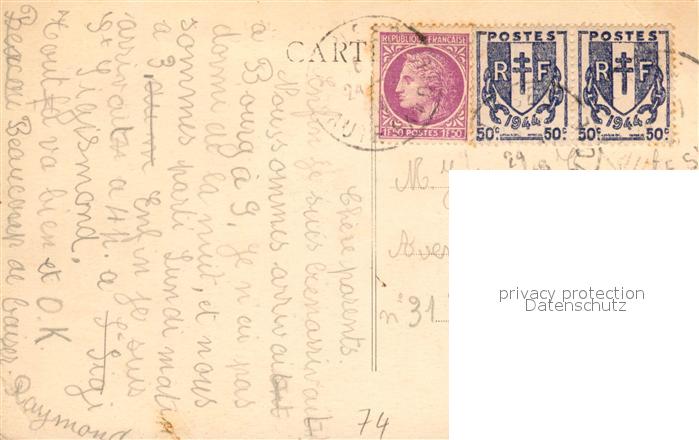 CARTE
REPUBLIQUE FRANCAISE
1F50 POSTES 1F50
POSTES
RF
1944
50c 50c
POSTES
RF
1944
50c 50c
Chère parents.
je suis bien arrivait
Nous sommes arrivait
à Bourg à 9, je n'ai pas
dormé de la nuit, et nous
sommes parti Lundi mati
à 3, Enfin je suis
arrivait a 4H. a St Sigi
St Sigismond,
tout sa va bien et O.K.
Beaucoup de baiser. Raymond
M.
Aven
31
74
privacy protection
Datenschutz